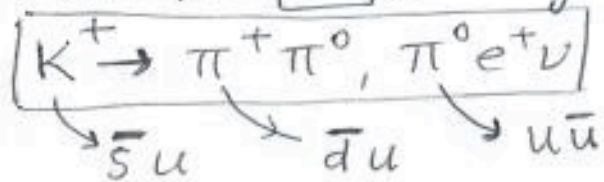 K⁺ → π⁺ π⁰, π⁰ e⁺ ν
s̄ u d̄ u u ū